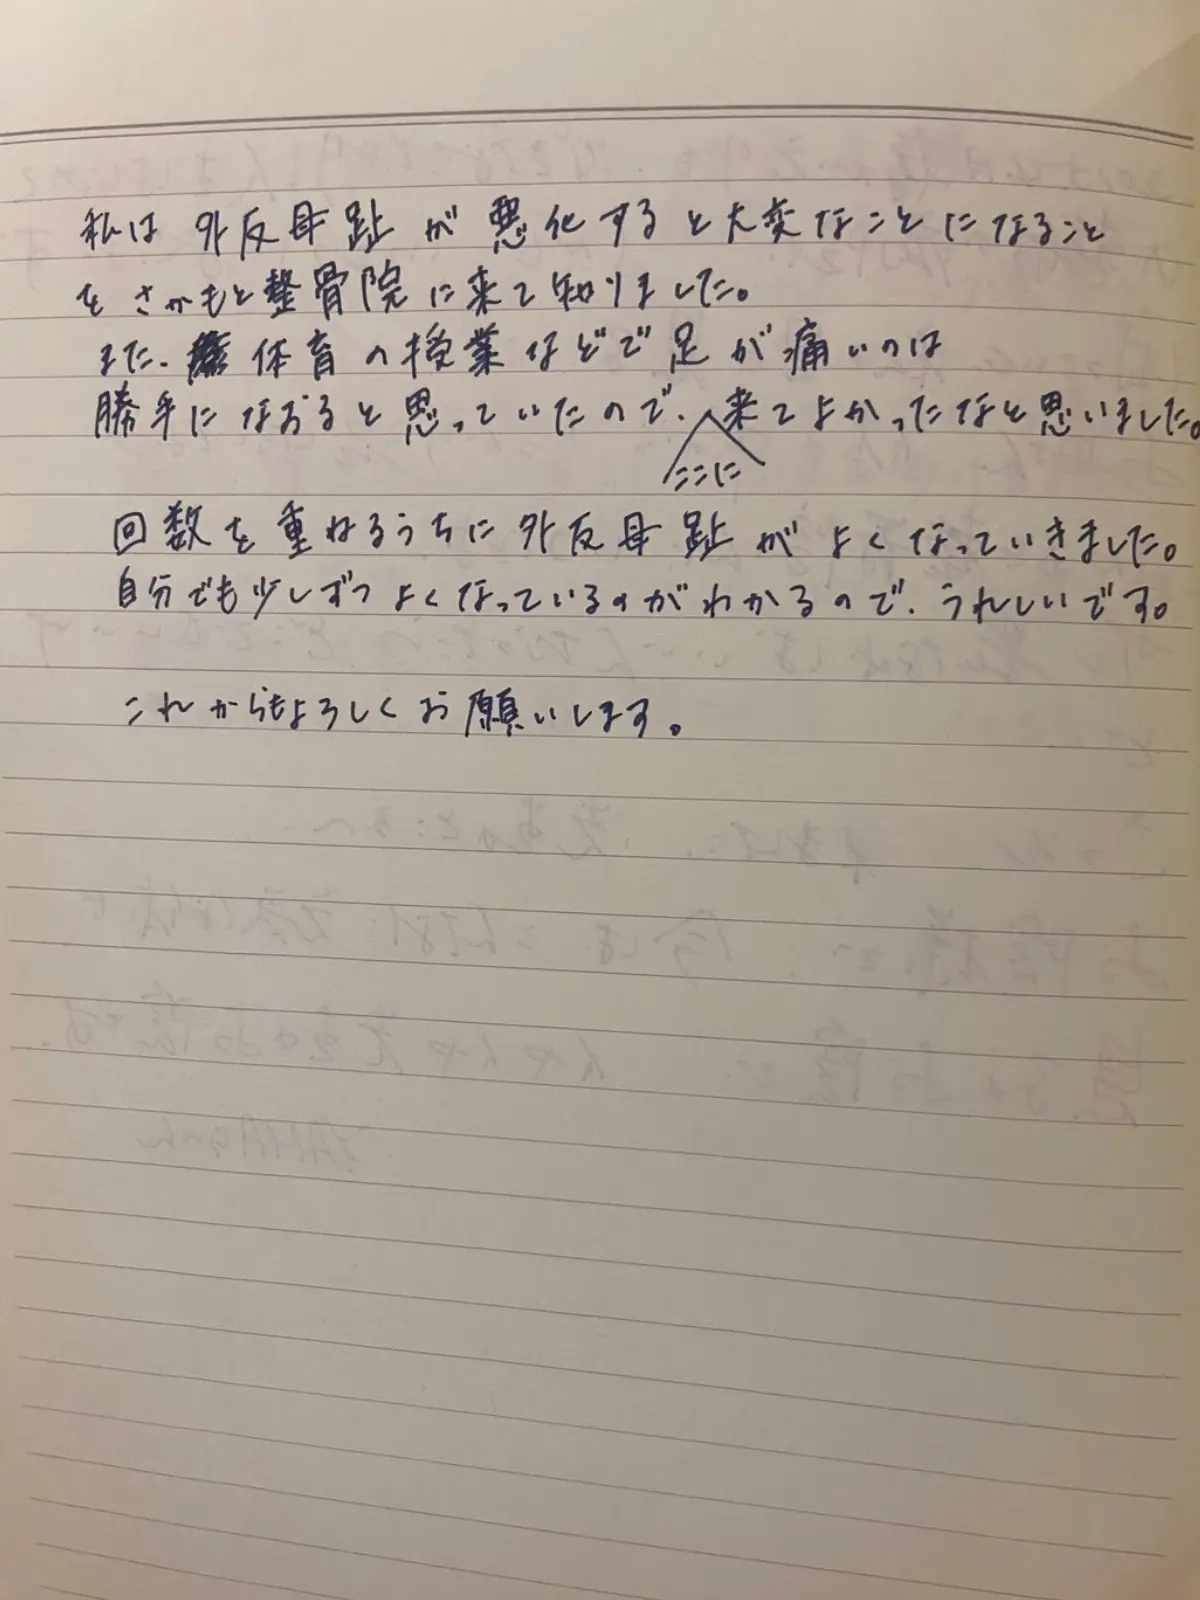 私は外反母趾が悪化すると大変なことになること
をさかもと整骨院に来て知りました。
また、体育の授業などで足が痛いのは
勝手になおると思っていたので、ここに来てよかったなと思いました。
回数を重ねるうちに外反母趾がよくなっていきました。
自分でも少しずつよくなっているのがわかるので、うれしいです。
これからもよろしくお願いします。